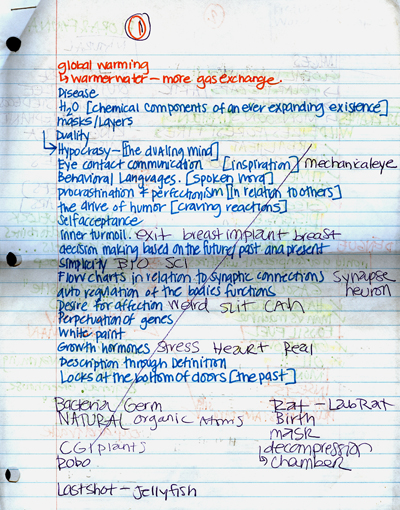 ①
global warming
↳ warmer water – more gas exchange.
Disease
H2O [chemical components of an ever expanding existence]
masks/Layers
Duality
↳ Hypocrasy – [the dualing mind]
Eye contact communication – [inspiration] mechanical eye
Behavioral Languages. [spoken word]
procrastination + perfectionism [in relation to others]
the drive of humor [craving reactions]
Self acceptance
inner turmoil. exit breast implant breast
decision making based on the future/past and present
simplicity BIO SCI
Flow charts in relation to synaptic connections synapse
auto regulation of the bodies functions neuron
Desire for affection weird slit
Perpetuation of genes
White paint
Growth hormones stress Heart Real
Description through Definition
Locks at the bottom of doors [the past]
Bacteria Germ Rat – Lab Rat
NATURAL organic Atoms Birth
mask
CGI plants decompression
Robo ↳ chamber
Last shot – Jellyfish